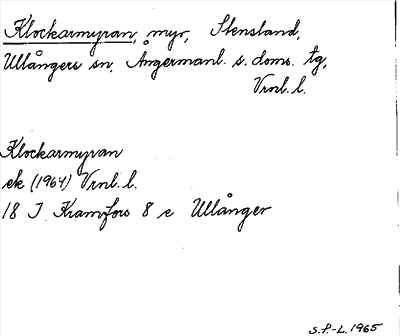 Klockarmyran, myr, Stensland,
Ullångers sn, Ångermanl. s. doms. tg,
Vrnl. l.
Klockarmyran
ek (1964) Vrnl. l.
18 J Kramfors 8 e Ullånger
S.P.-L. 1965